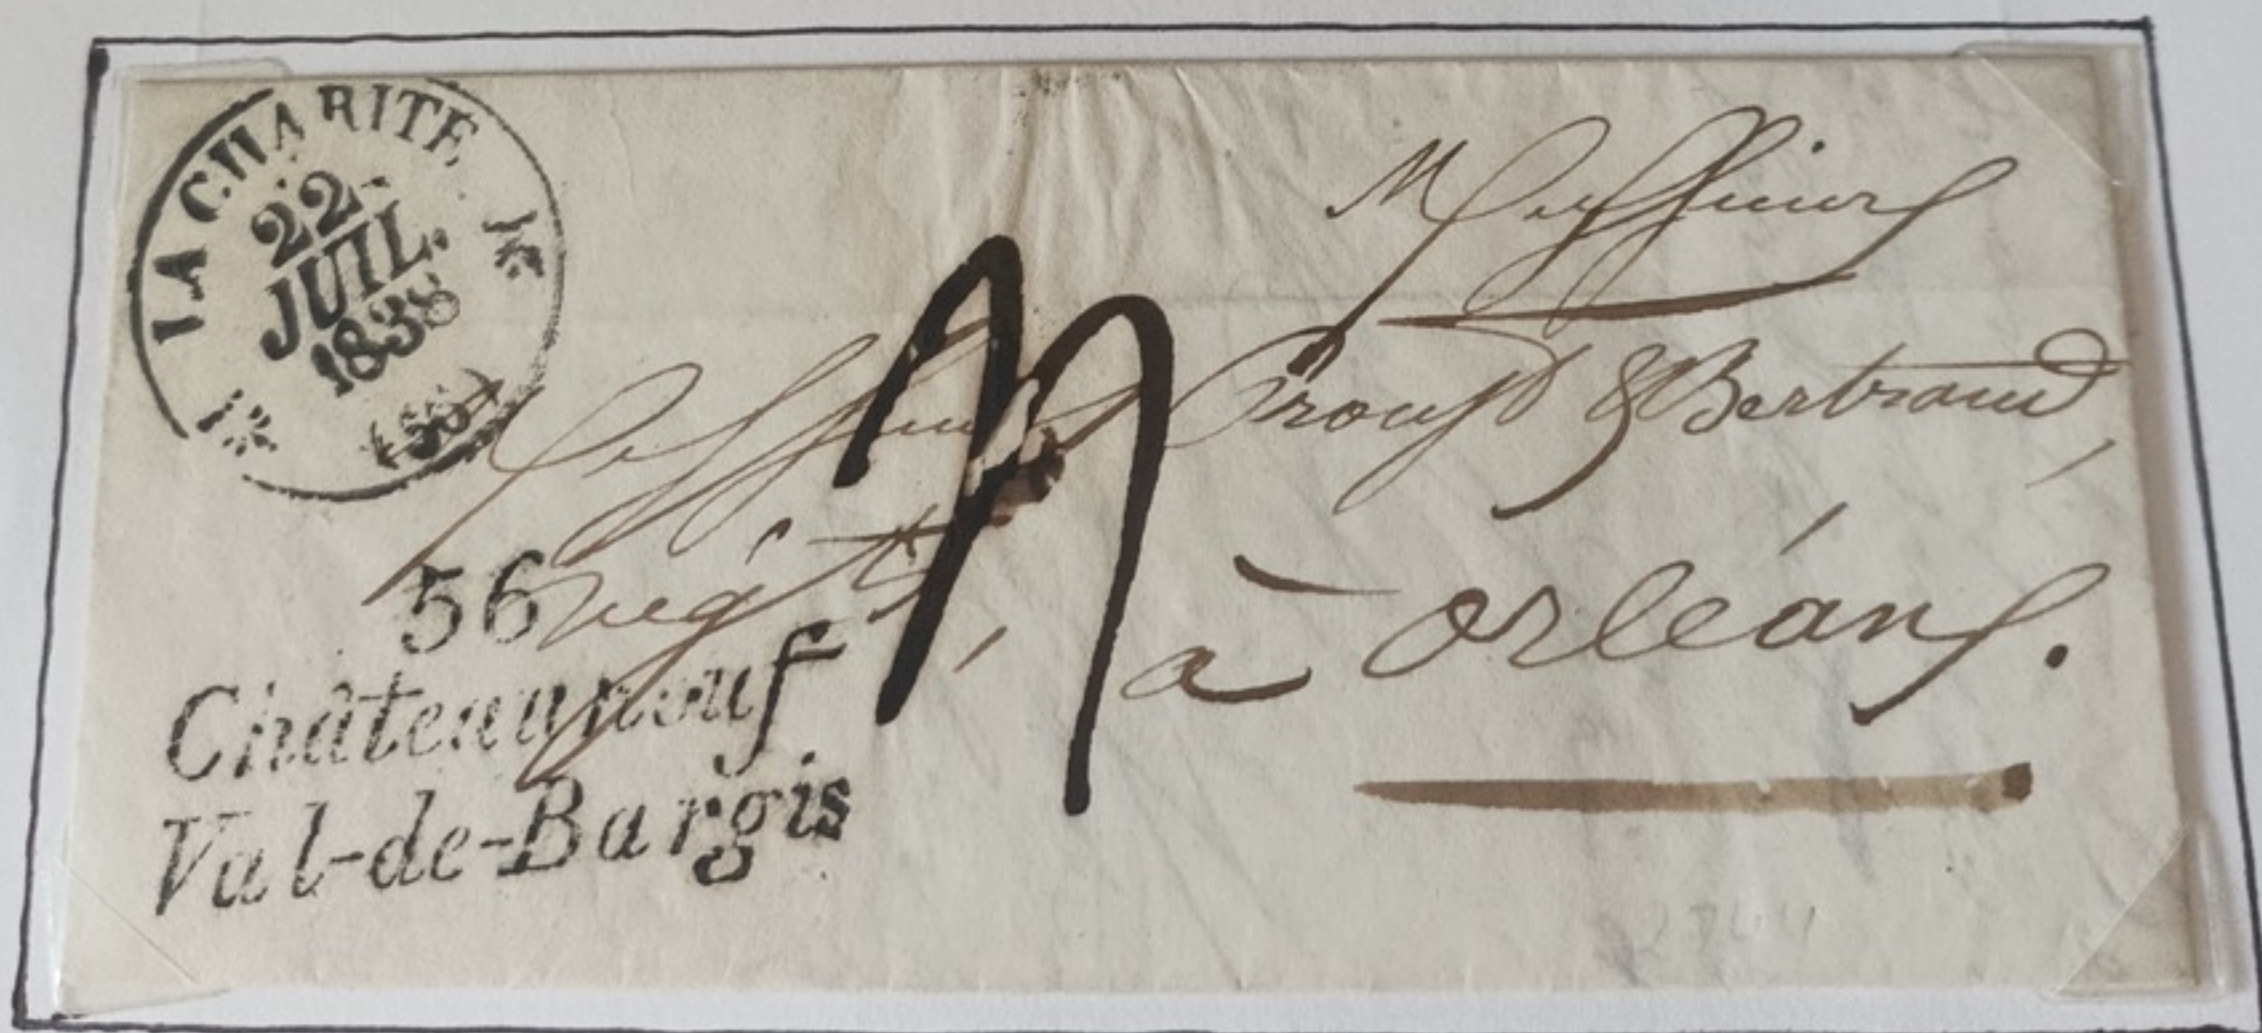 LA CHARITE
22
JUIL.
1838
(56)
Messieurs
Messieurs Proust & Bertrand,
négts,
à Orléans.
56
Châteauneuf
Val-de-Bargis
2744